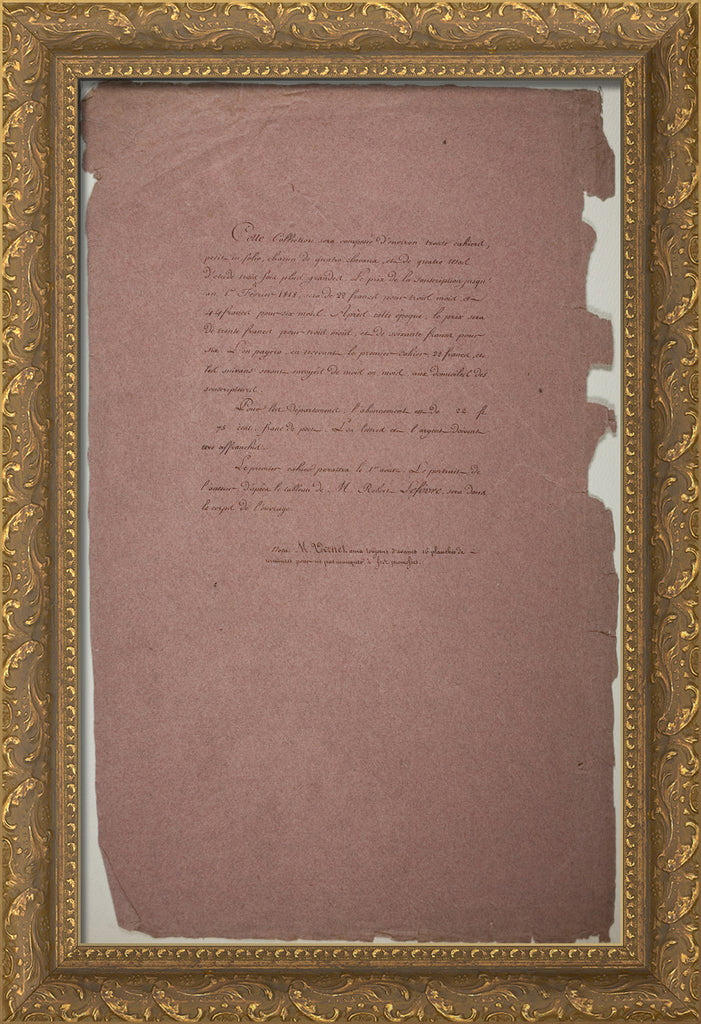 Cette Collection sera composée d'environ trente cahiers,
petit in folio, chacun de quatre chevaux, et de quatre
d'étude trois fois plus grandes. Le prix de la souscription jusqu'
au 1er Février 1818, sera de 22 francs pour trois mois et
44 francs pour six mois. Après cette époque, le prix sera
de trente francs pour trois mois, et de soixante francs pour
six. L'on payera, en recevant le premier cahier 22 francs, et
les suivans seront envoyés de mois en mois aux domiciles des
souscripteurs.
Pour les départemens, l'abonnement est de 22 f.
75 cent. franc de port. Les lettres et l'argent doivent
être affranchis.
Le premier cahier paraîtra le 1er août. Le portrait de
l'auteur d'après le tableau de M. Robert Lefèvre, sera dans
le corps de l'ouvrage.
Nota. M. Vernet aura toujours d'avance 16 planches de
terminées pour ne pas manquer à ses promesses.